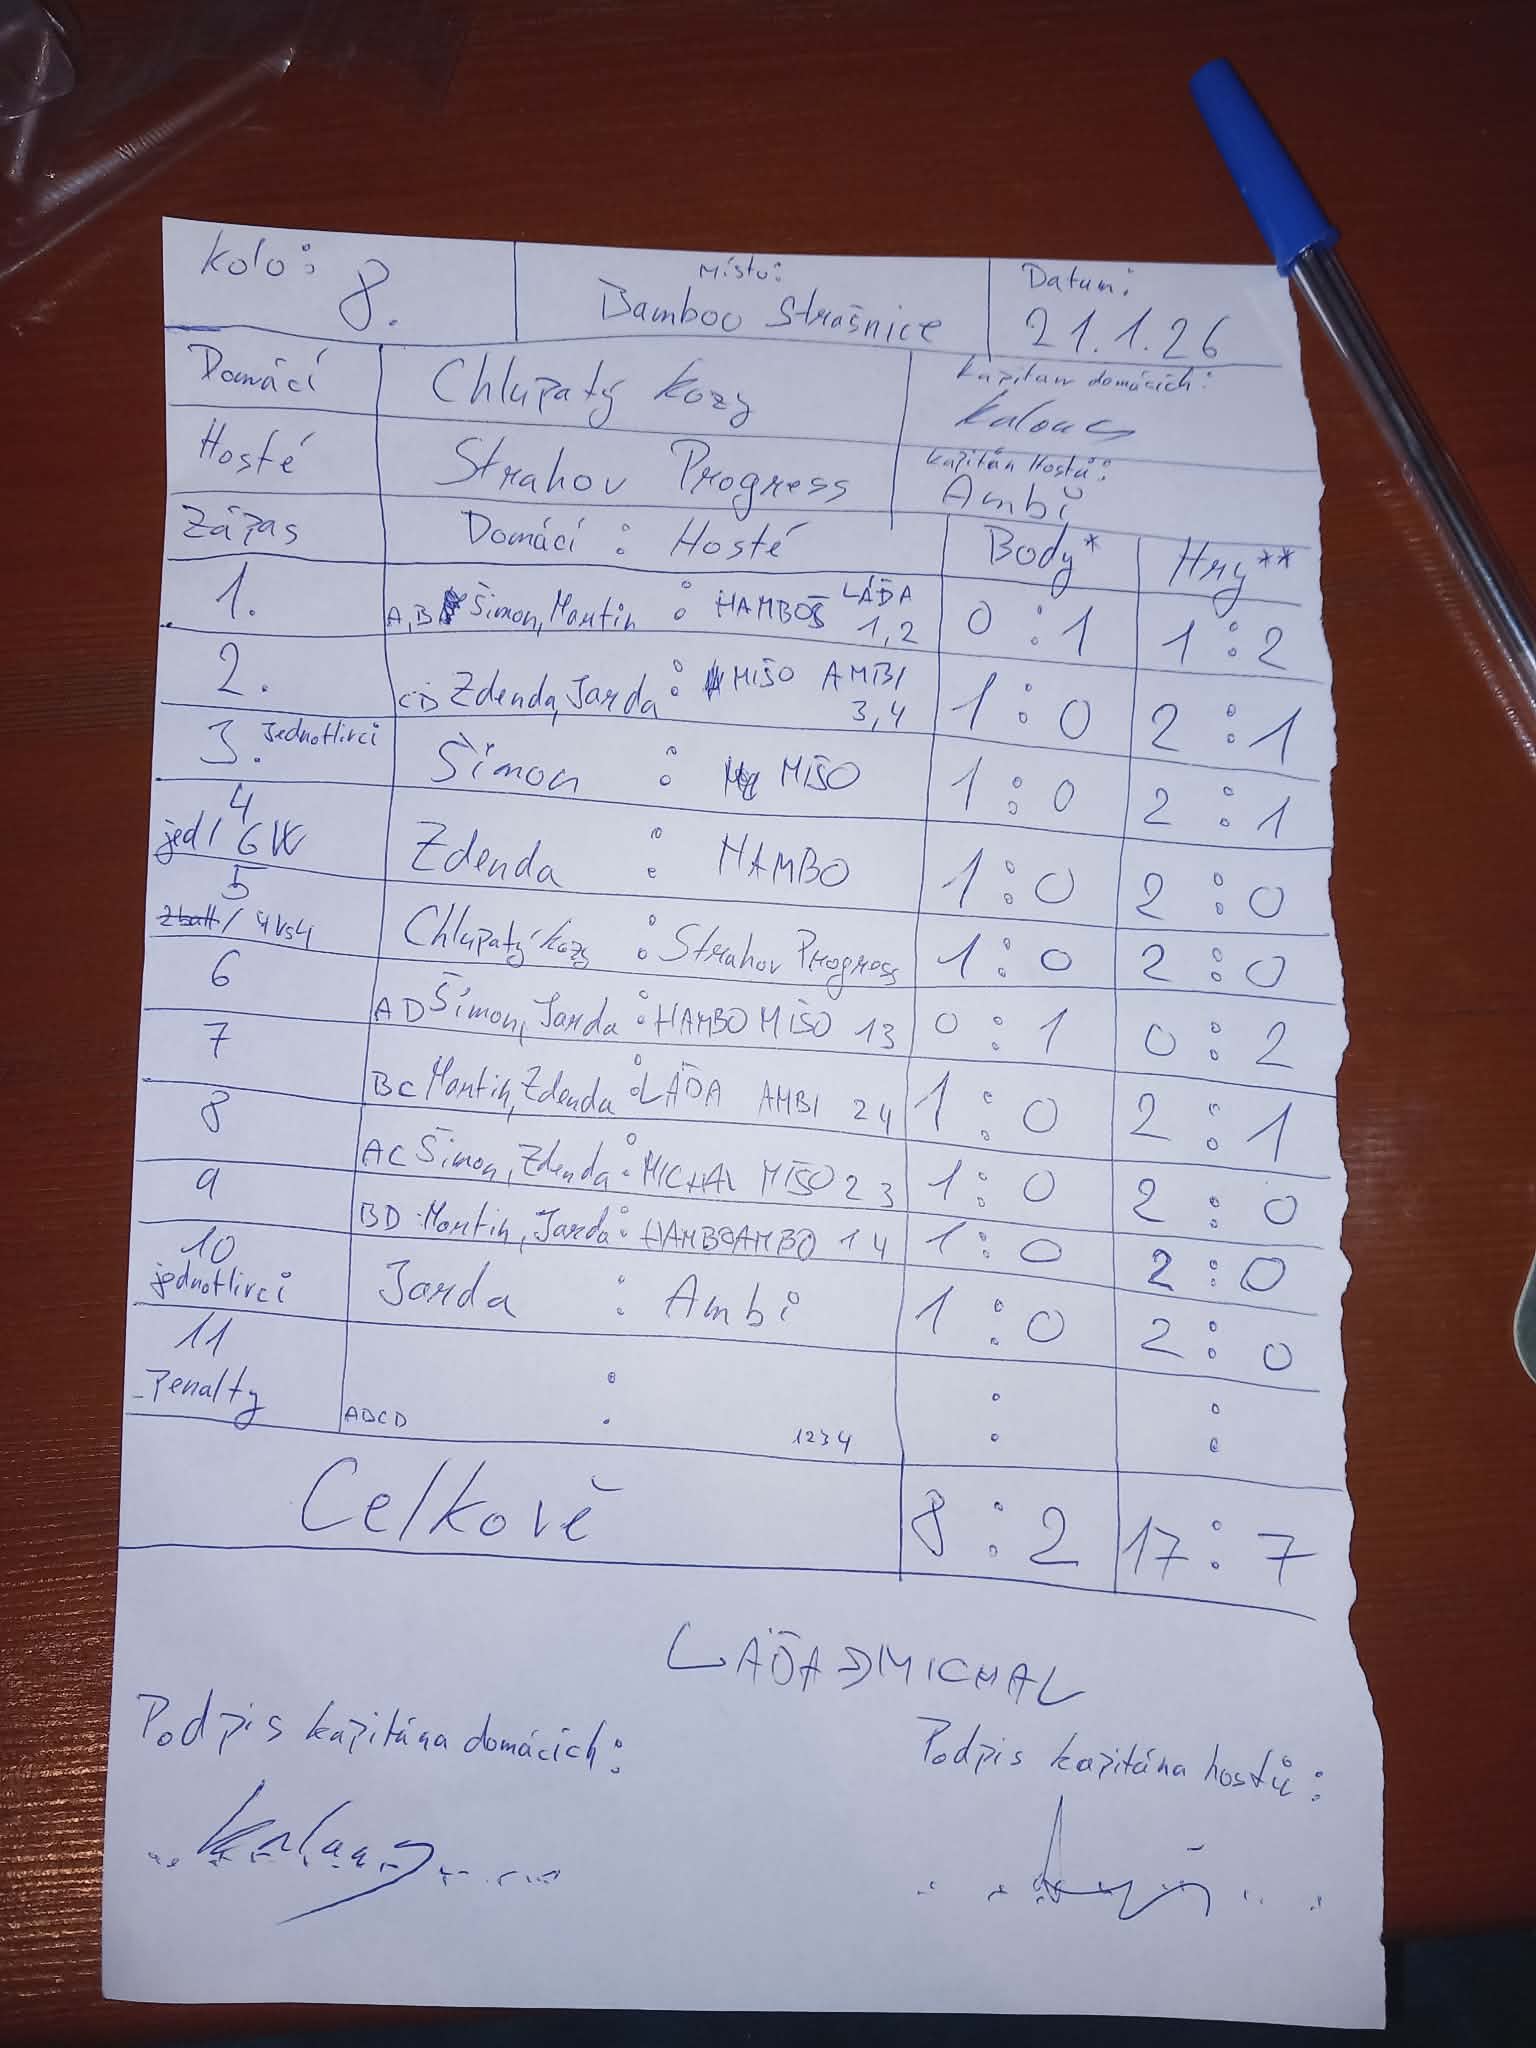 Kolo: 8.
Místo: Bamboo Strašnice
Datum: 21.1.26
Domácí Chlupatý kozy
Kapitán domácích: Kalous
Hosté Strahov Progress
Kapitán Hostů: Ambi
Zápas Domácí : Hosté Body* Hry**
1. A,B Šimon, Martin : HAMBO LÁĎA 1,2 0 : 1 1 : 2
2. CD Zdenda, Jarda : MIŠO AMBI 3,4 1 : 0 2 : 1
3. Jednotlivci Šimon : MIŠO 1 : 0 2 : 1
4 jed/ Zdenda : HAMBO 1 : 0 2 : 0
5 / 4vs4 Chlupatý kozy : Strahov Progress 1 : 0 2 : 0
6 AD Šimon, Jarda : HAMBO MIŠO 13 0 : 1 0 : 2
7 BC Martin, Zdenda : LÁĎA AMBI 24 1 : 0 2 : 1
8 AC Šimon, Zdenda : MICHAL MIŠO 23 1 : 0 2 : 0
9 BD Martin, Jarda : 14 1 : 0 2 : 0
10 jednotlivci Jarda : Ambi 1 : 0 2 : 0
11 Penalty ABCD : 1234 : :
Celkově 8 : 2 17 : 7
LÁĎA MICHAL
Podpis kapitána domácích:
Podpis kapitána hostů:
Kalous